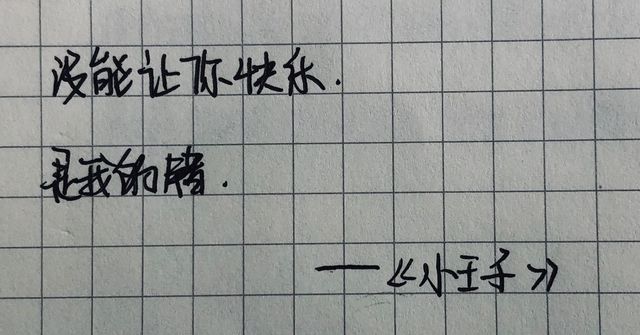 没能让你快乐.
是我的错.
——《小王子》